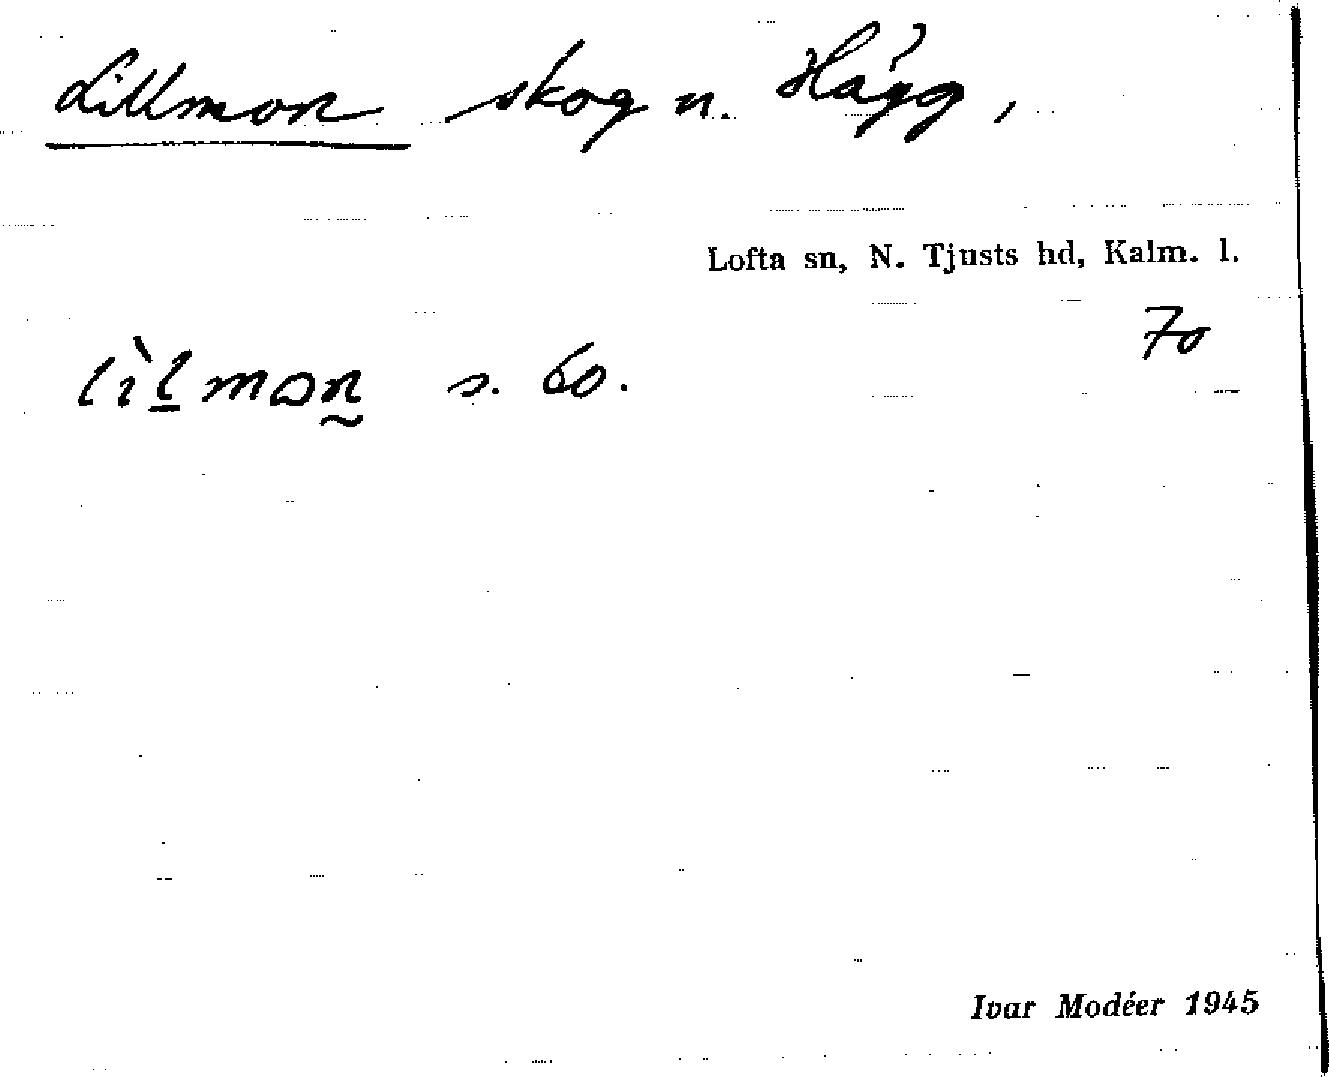 Lillmon skog n. Hägg,
Lofta sn, N. Tjusts hd, Kalm. l.
70
lìlmon s. 60.
Ivar Modéer 1945